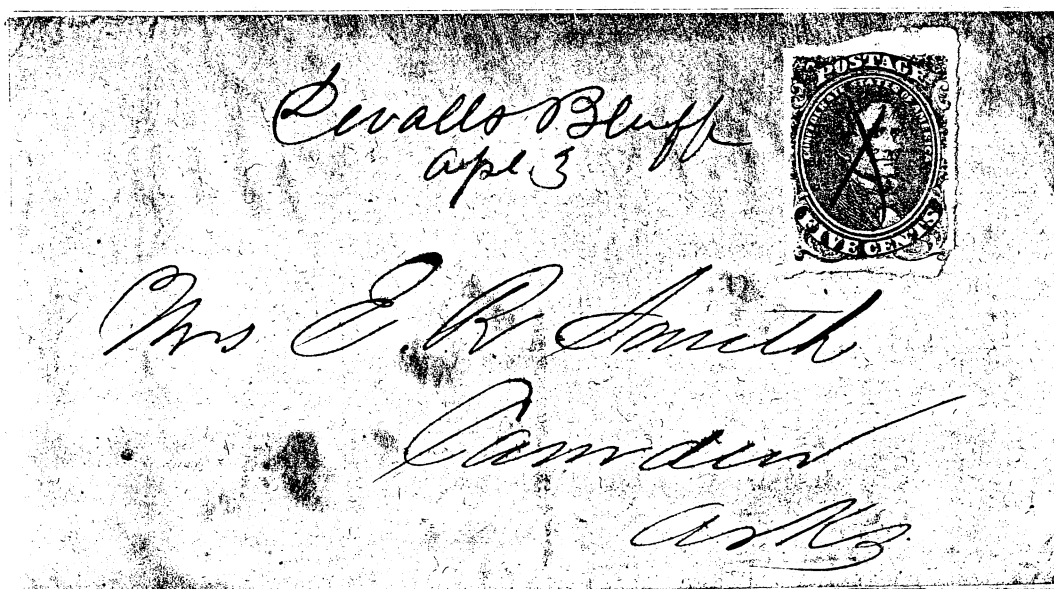 Devalls Bluff
apl. 3
POSTAGE
CONFEDERATE STATES OF AMERICA
FIVE CENTS
Mrs E. R Smith
Camden
Arks